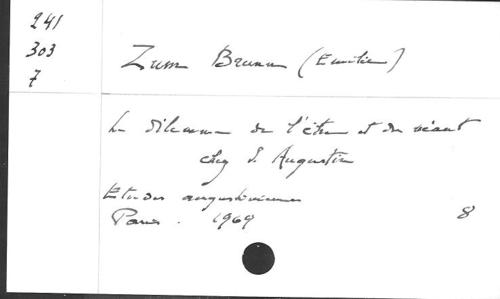 241
303
7
Zum Brunn (Emilie)
Le dilemme de l'être et du néant
chez S. Augustin
Etudes augustiniennes
Paris. 1969
8